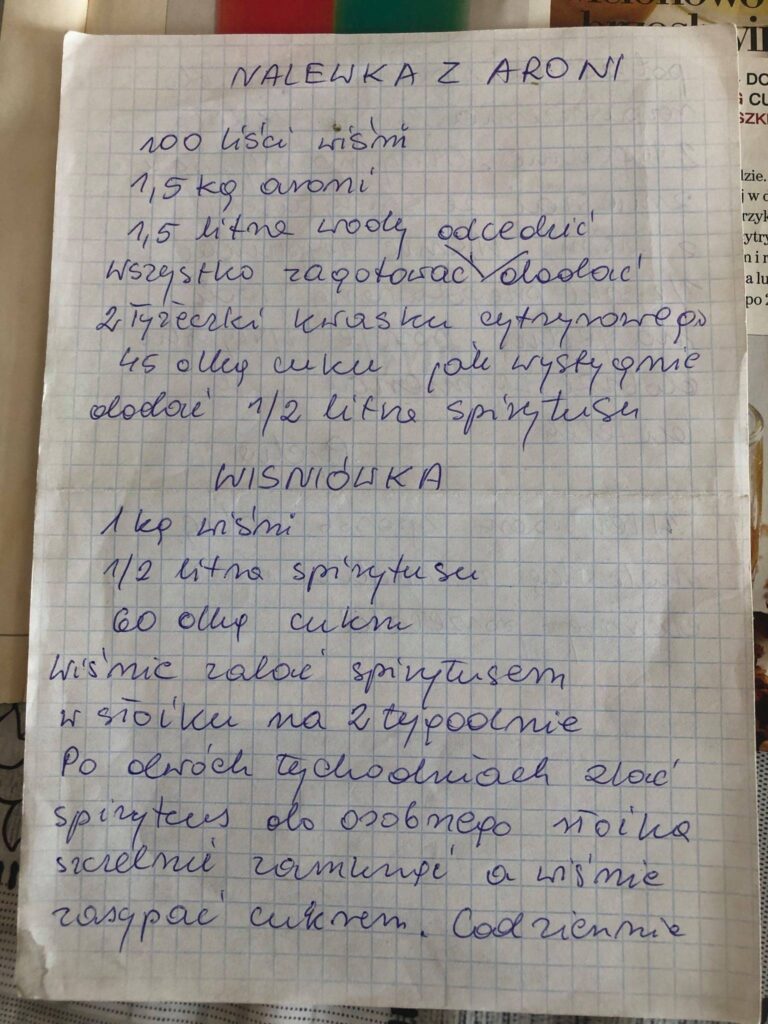 NALEWKA Z ARONI
100 liści wiśni
1,5 kg aroni
1,5 litra wody odcedzić
wszystko zagotować dodać
2 łyżeczki kwasku cytrynowego
45 dkg cuku jak wystygnie
dodać 1/2 litra spirytusu
WISNIÓWKA
1 kg wiśni
1/2 litra spirytusu
60 dkg cukru
wiśnie zalać spirytusem
w słoiku na 2 tygodnie
Po dwóch tychodniach zlać
spirytus do osobnego słoika
szczelnie zamknąć a wiśnie
zasypać cukrem. Codziennie
DO
CU
dzie.
j w d
m i r
a lu
po 2